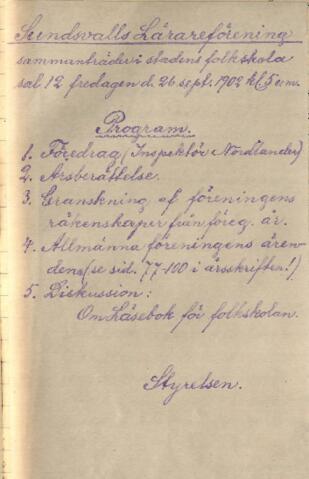 Sundsvalls Lärareförening
sammanträder i stadens folkskola
sal 12 fredagen d. 26 sept. 1902 kl. 5 e.m.
Program.
1. Föredrag (Inspektör Nordlander)
2. Årsberättelse.
3. Granskning af föreningens
räkenskaper från föreg. år.
4. Allmänna föreningens ären-
den (se sid. 77-100 i årsskriften!)
5. Diskussion:
Om Läsebok för folkskolan.
Styrelsen.